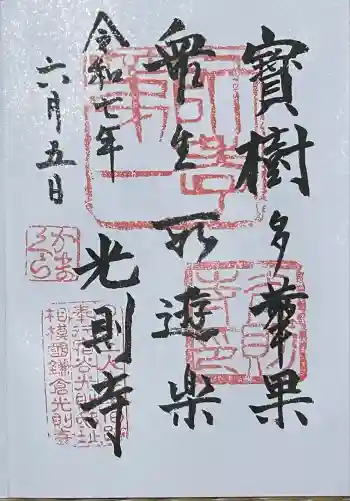 寶樹多華果
衆生所遊樂
光則寺
令和七年
六月五日
かまくら
相模國鎌倉光則寺